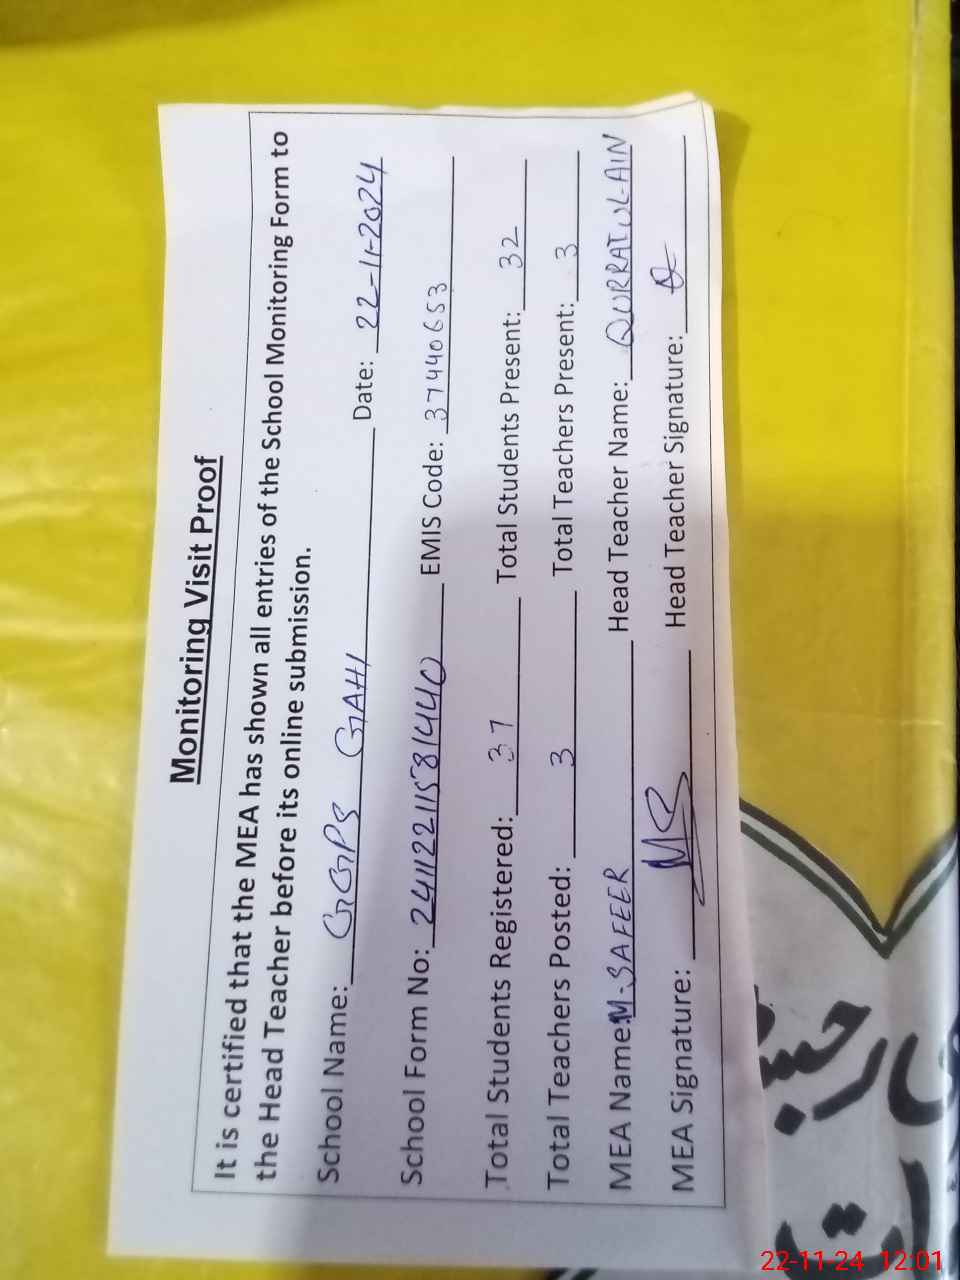 Monitoring Visit Proof
It is certified that the MEA has shown all entries of the School Monitoring Form to
the Head Teacher before its online submission.
School Name: GGPS GAHI Date: 22-11-2024
School Form No: 24112211581440 EMIS Code: 37440653
Total Students Registered: 37 Total Students Present: 32
Total Teachers Posted: 3 Total Teachers Present: 3
MEA Name: M-SAFEER Head Teacher Name: QURRATUL-AIN
MEA Signature: MS Head Teacher Signature:
22-11-24 12:01